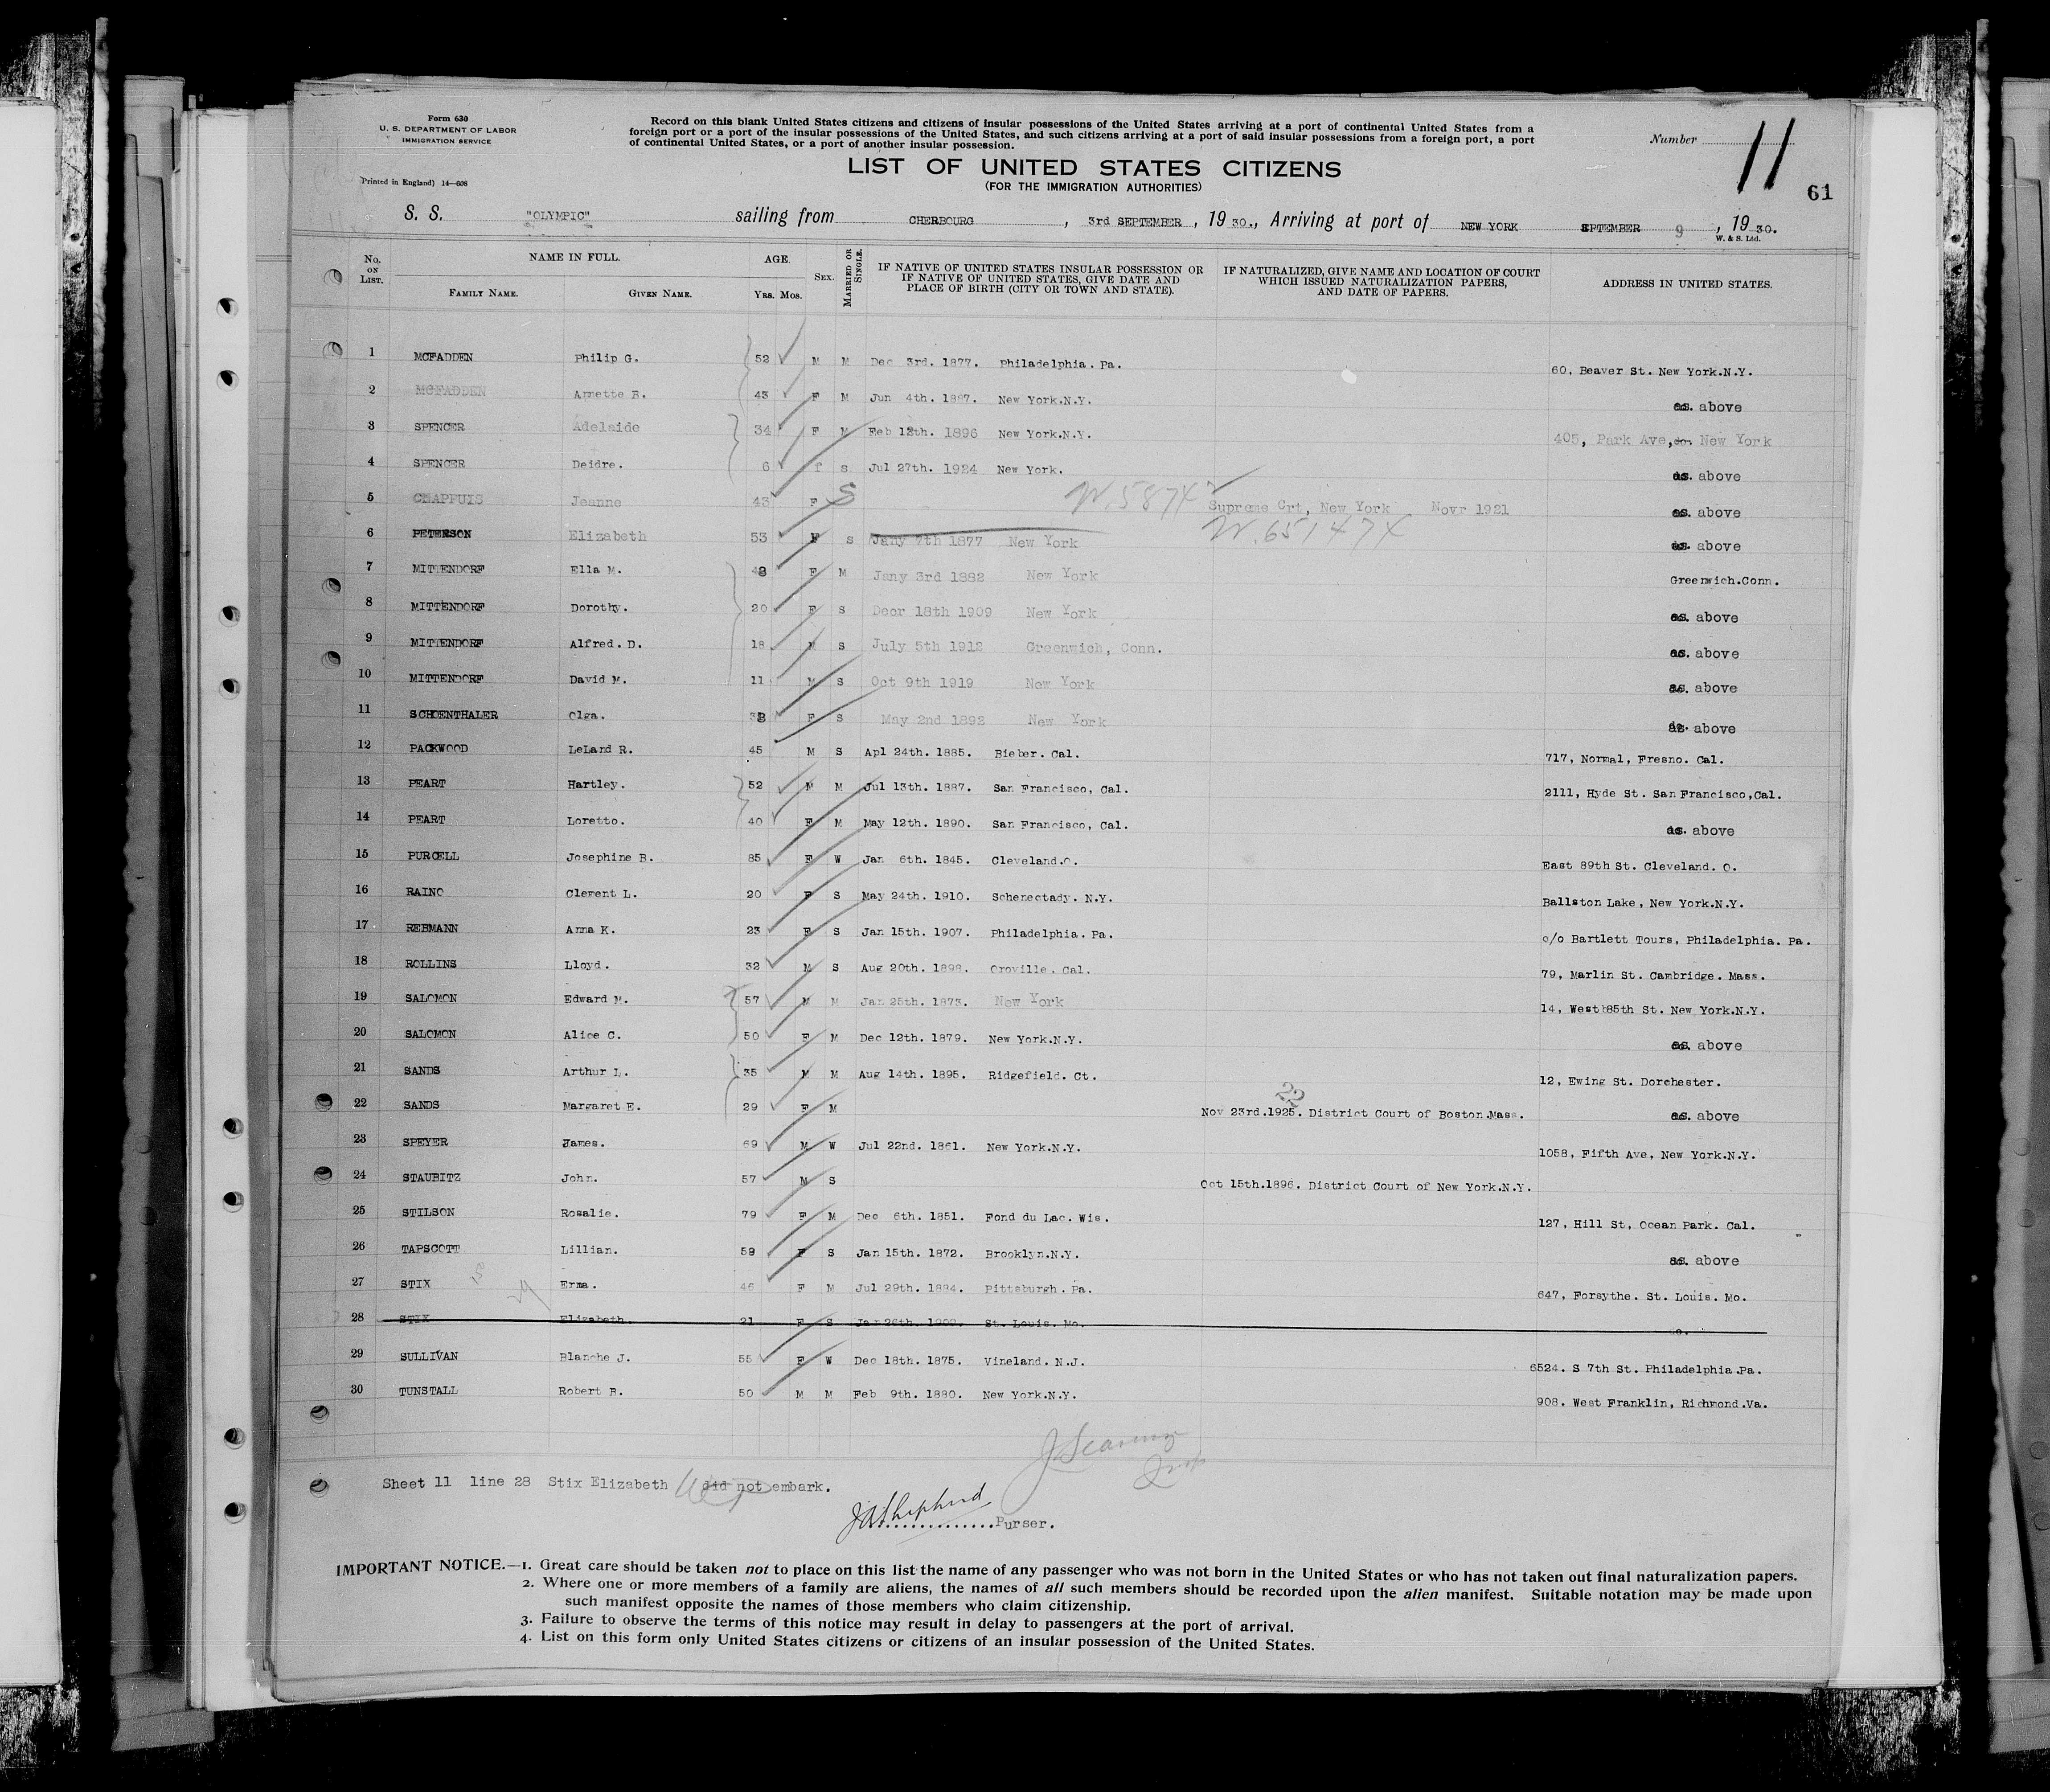 Form 630
U. S. DEPARTMENT OF LABOR
IMMIGRATION SERVICE
Printed in England) 14—608
Record on this blank United States citizens and citizens of insular possessions of the United States arriving at a port of continental United States from a
foreign port or a port of the insular possessions of the United States, and such citizens arriving at a port of said insular possessions from a foreign port, a port
of continental United States, or a port of another insular possession.
Number 11
61
LIST OF UNITED STATES CITIZENS
(FOR THE IMMIGRATION AUTHORITIES)
S. S. "OLYMPIC" sailing from CHERBOURG, 3rd SEPTEMBER, 19 30., Arriving at port of NEW YORK SPTEMBER 9, 19 30.
W. & S. Ltd.
No. ON LIST. NAME IN FULL. AGE. SEX. MARRIED OR SINGLE. IF NATIVE OF UNITED STATES INSULAR POSSESSION OR IF NATIVE OF UNITED STATES, GIVE DATE AND PLACE OF BIRTH (CITY OR TOWN AND STATE). IF NATURALIZED, GIVE NAME AND LOCATION OF COURT WHICH ISSUED NATURALIZATION PAPERS, AND DATE OF PAPERS. ADDRESS IN UNITED STATES.
FAMILY NAME. GIVEN NAME. YRS. MOS.
1 MCFADDEN Philip G. 52 M M Dec 3rd. 1877. Philadelphia. Pa. 60, Beaver St. New York.N.Y.
2 MCFADDEN Annette B. 43 F M Jun 4th. 1887. New York.N.Y. as. above
3 SPENCER Adelaide 34 F M Feb 12th. 1896 New York.N.Y. 405, Park Ave, New York
4 SPENCER Deidre. 6 f s Jul 27th. 1924 New York. as. above
5 CHAPPUIS Jeanne 43 F S W.5874 Supreme Crt, New York Novr 1921 as. above
6 PETERSON Elizabeth 53 F S Jany 7th 1877 New York W.651474 as. above
7 MITTENDORF Ella M. 48 F M Jany 3rd 1882 New York Greenwich.Conn.
8 MITTENDORF Dorothy. 20 F S Decr 18th 1909 New York as. above
9 MITTENDORF Alfred. D. 18 M S July 5th 1912 Greenwich, Conn. as. above
10 MITTENDORF David M. 11 M S Oct 9th 1919 New York as. above
11 SCHOENTHALER Olga. 38 F S May 2nd 1892 New York as. above
12 PACKWOOD LeLand R. 45 M S Apl 24th. 1885. Bieber. Cal. 717, Normal, Fresno. Cal.
13 PEART Hartley. 52 M M Jul 13th. 1887. San Francisco, Cal. 2111, Hyde St. San Francisco,Cal.
14 PEART Loretto. 40 F M May 12th. 1890. San Francisco, Cal. as. above
15 PURCELL Josephine B. 85 F W Jan 6th. 1845. Cleveland.O. East 89th St. Cleveland. O.
16 RAINO Clement L. 20 F S May 24th. 1910. Schenectady. N.Y. Ballston Lake, New York.N.Y.
17 REBMANN Anna K. 23 F S Jan 15th. 1907. Philadelphia. Pa. c/o Bartlett Tours, Philadelphia. Pa.
18 ROLLINS Lloyd. 32 M S Aug 20th. 1898. Oroville. Cal. 79, Marlin St. Cambridge. Mass.
19 SALOMON Edward M. 57 M M Jan 25th. 1873. New York 14, West 85th St. New York.N.Y.
20 SALOMON Alice C. 50 F M Dec 12th. 1879. New York.N.Y. as. above
21 SANDS Arthur L. 35 M M Aug 14th. 1895. Ridgefield. Ct. 12, Ewing St. Dorchester.
22 SANDS Margaret E. 29 F M 22 Nov 23rd.1925. District Court of Boston.Mass. as. above
23 SPEYER James. 69 M W Jul 22nd. 1861. New York.N.Y. 1058, Fifth Ave, New York.N.Y.
24 STAUBITZ John. 57 M S Oct 15th.1896. District Court of New York.N.Y.
25 STILSON Rosalie. 79 F M Dec 6th. 1851. Fond du Lac. Wis. 127, Hill St, Ocean Park. Cal.
26 TAPSCOTT Lillian. 58 F S Jan 15th. 1872. Brooklyn.N.Y. as. above
27 STIX Erma. 46 F M Jul 29th. 1884. Pittsburgh. Pa. 647, Forsythe. St. Louis. Mo.
28 STIX Elizabeth 21 F S Jan 26th. 1909. St. Louis. Mo.
29 SULLIVAN Blanche J. 55 F W Dec 18th. 1875. Vineland. N.J. 6524. S 7th St. Philadelphia.Pa.
30 TUNSTALL Robert B. 50 M M Feb 9th. 1880. New York.N.Y. 908. West Franklin, Richmond.Va.
Sheet 11 line 28 Stix Elizabeth did not embark.
JAShepherd Purser.
IMPORTANT NOTICE.—1. Great care should be taken not to place on this list the name of any passenger who was not born in the United States or who has not taken out final naturalization papers.
2. Where one or more members of a family are aliens, the names of all such members should be recorded upon the alien manifest. Suitable notation may be made upon
such manifest opposite the names of those members who claim citizenship.
3. Failure to observe the terms of this notice may result in delay to passengers at the port of arrival.
4. List on this form only United States citizens or citizens of an insular possession of the United States.